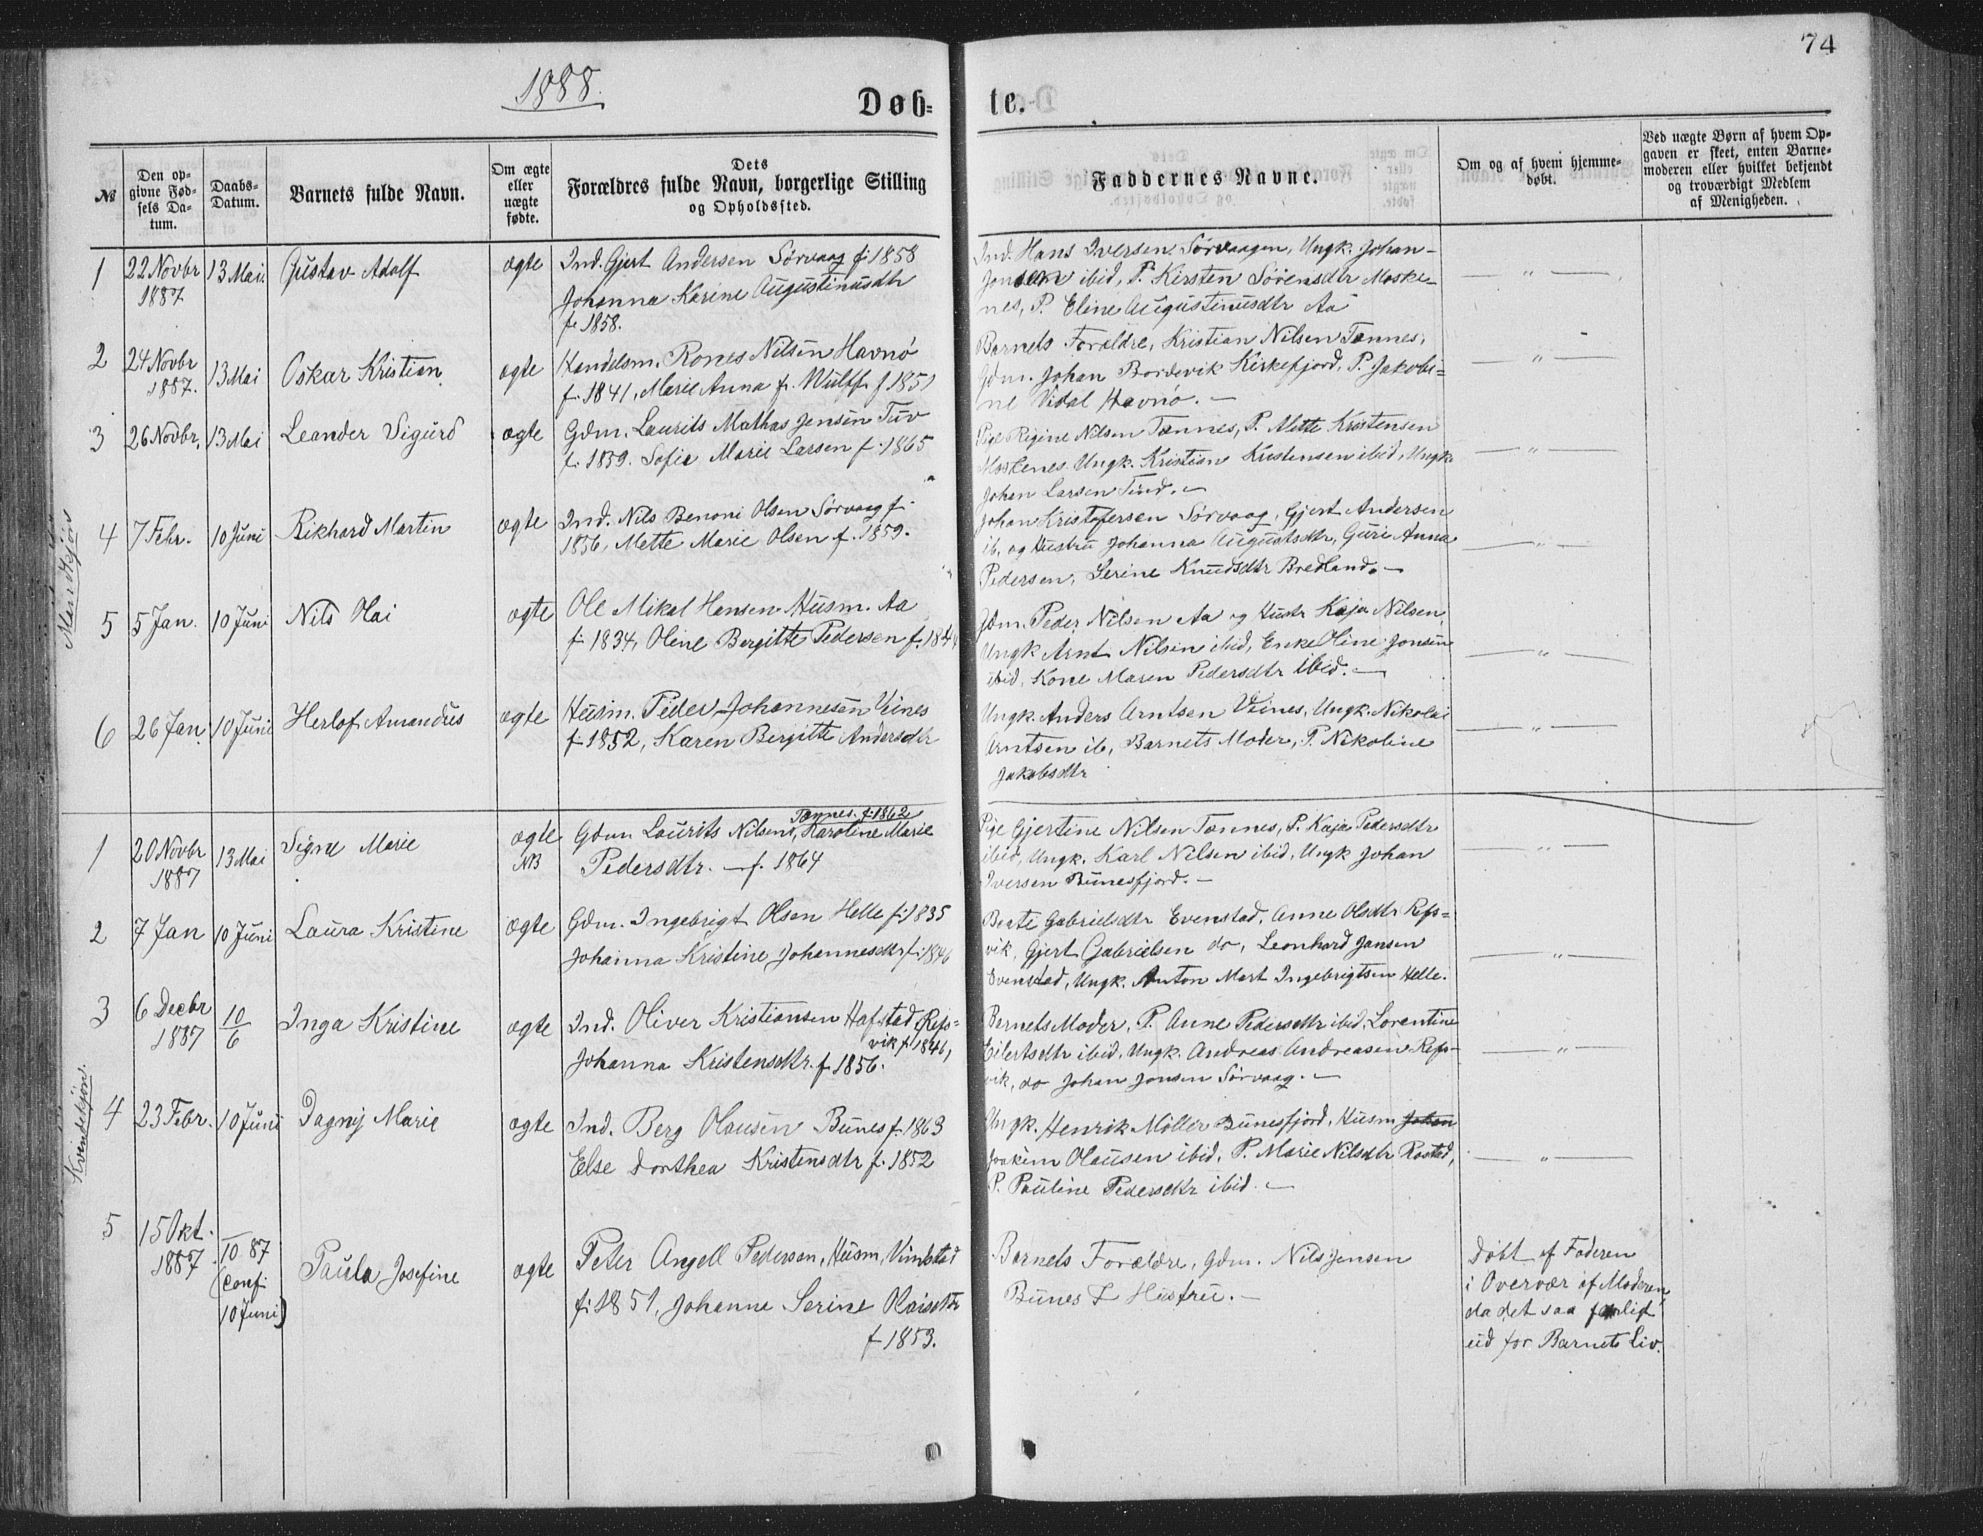 74
1888.
Døb-
te.
№
Den op-
givne Fød-
sels Da-
tum.
Daabs-
Datum.
Barnets fulde Navn.
Om ægte
eller
uægte
fødte.
Dets
Forældres fulde Navn, borgerlige Stilling
og Opholdssted.
Faddernes Navne.
Om og af hvem hjemme-
døbt.
Ved uægte Børn af hvem Op-
gaven er skeet, enten Barne-
moderen eller hvilket bekjendt
og troværdigt Medlem
af Menigheden.
Mandkjøn
1
22 Novbr
1887
13 Mai.
Gustav Adolf
ægte
Ind. Gjert Andersen Sørvaag f. 1858
Johanna Karine Augustinusdtr
f. 1858.
Ind. Hans Iversen Sørvaagen, Ungk. Johan
Jonsen ibid, P. Kirsten Sørensdtr Moske-
nes, P. Eline Augustinusdtr Aa
— " —
2
24 Novbr
1887.
13 Mai
Oskar Kristian
ægte
Handelsm. Rones Nilsen Havnø
f. 1841, Marie Anna f. Wulff f 1851
Barnets Forældre, Kristian Nilsen Tennes,
Gdm. Johan Bordevik Kirkefjord, P. Jakobi-
ne Vidal Havnø. —
— " —
3
26 Novbr.
13 Mai
Leander Sigurd
ægte
Gdm. Laurits Mathas Jensen Tuv
f. 1839. Sofie Marie Larsen f. 1865
Pige Regine Nilsen Tennes, P. Mette Kristensen
Moskenes Ungk. Kristian Kristensen ibid, Ungk.
Johan Larsen Tind. —
— " —
4
7 Febr.
10 Juni
Rikhard Martin
ægte
Ind. Nils Benoni Olsen Sørvaag f.
1856, Mette Marie Olsen f. 1859.
Johan Kristofersen Sørvaag, Gjert Andersen
ib. og Hustru Johanna Augustsdtr, Guri Anna
Pedersen, Serine Knudsdtr Bredland. —
— " —
5
5 Jan.
10 Juni
Nils Olai
ægte
Ole Mikal Hansen Husm. Aa
f. 1834, Oline Bergitte Pedersen f. 1844
Gdm. Peder Nilsen Aa og Hustr Kaja Nilsen,
Ungk Arnt Nilsen ibid, Enke Oline Jonsen
ibid, Kone Maren Pedersdtr ibid. —
— " —
6
26 Jan.
10 Juni
Herlof Amandus
ægte
Husm. Peder Johannesen Vines
f. 1852, Karen Bergitte Andersdtr
Ungk. Anders Arntsen Vines, Ungk. Nikolai
Arntsen ib, Barnets Moder, P. Nikoline
Jakobsdtr
— " —
Kvindekjøn.
1
20 Novbr
1887
13 Mai
Signe Marie
ægte
NB
Tennes. f. 1862
Gdm. Laurits Nilsen, Karoline Marie
Pedersdtr. — f. 1864
Pige Gjertine Nilsen Tennes, P. Kaja Pedersdtr
ibid, Ungk. Karl Nilsen ibid, Ungk Johan
Iversen Bunesfjord. —
— " —
2
7 Jan
10 Juni
Laura Kristine
ægte
Gdm. Ingebrigt Olsen Helle f. 1835
Johanna Kristine Johannesdtr f. 1846
Beate Gabrielsdtr Evenstad, Anne Olsdtr Refs-
vik, Gjert Gabrielsen do, Leonhard Jansen
Evenstad, Ungk. Anton Mart Ingebrigtsen Helle.
— " —
3
6 Decbr
1887
10
6
Inga Kristine
ægte
Ind. Oliver Kristiansen Hafstad, Refs-
vik f 1846,
Johanna Kristensdtr. f 1856.
Barnets Moder, P. Anne Pedersdtr ibid, Lorentine
Eilertsdtr ibid, Ungk. Andreas Andreasen Refs-
vik, do Johan Jonsen Sørvaag. —
— " —
4
23 Febr.
10 Juni
Dagny Marie
ægte
Ind. Berg Olausen Bunes f. 1863
Else Dorthea Kristensdtr f. 1852
Ungk. Henrik Møller Bunesfjord, Husm Johan
Joakim Olausen ibid, P. Marie Nilsdtr Rostad,
P. Pauline Pedersdtr ibid. —
— " —
5
15 Okt.
1887
10 87
(conf.
10 Juni)
Paula Josefine
ægte
Peter Angell Pedersen, Husm, Vinstad
f. 1851, Johanne Serine Olaisdtr
f 1853.
Barnets Forældre, Gdm. Nils Jensen
Bunes & Hustru. —
Døbt af Faderen
i Overvær af Moderen,
da det saa farligt
ud for Barnets Liv.